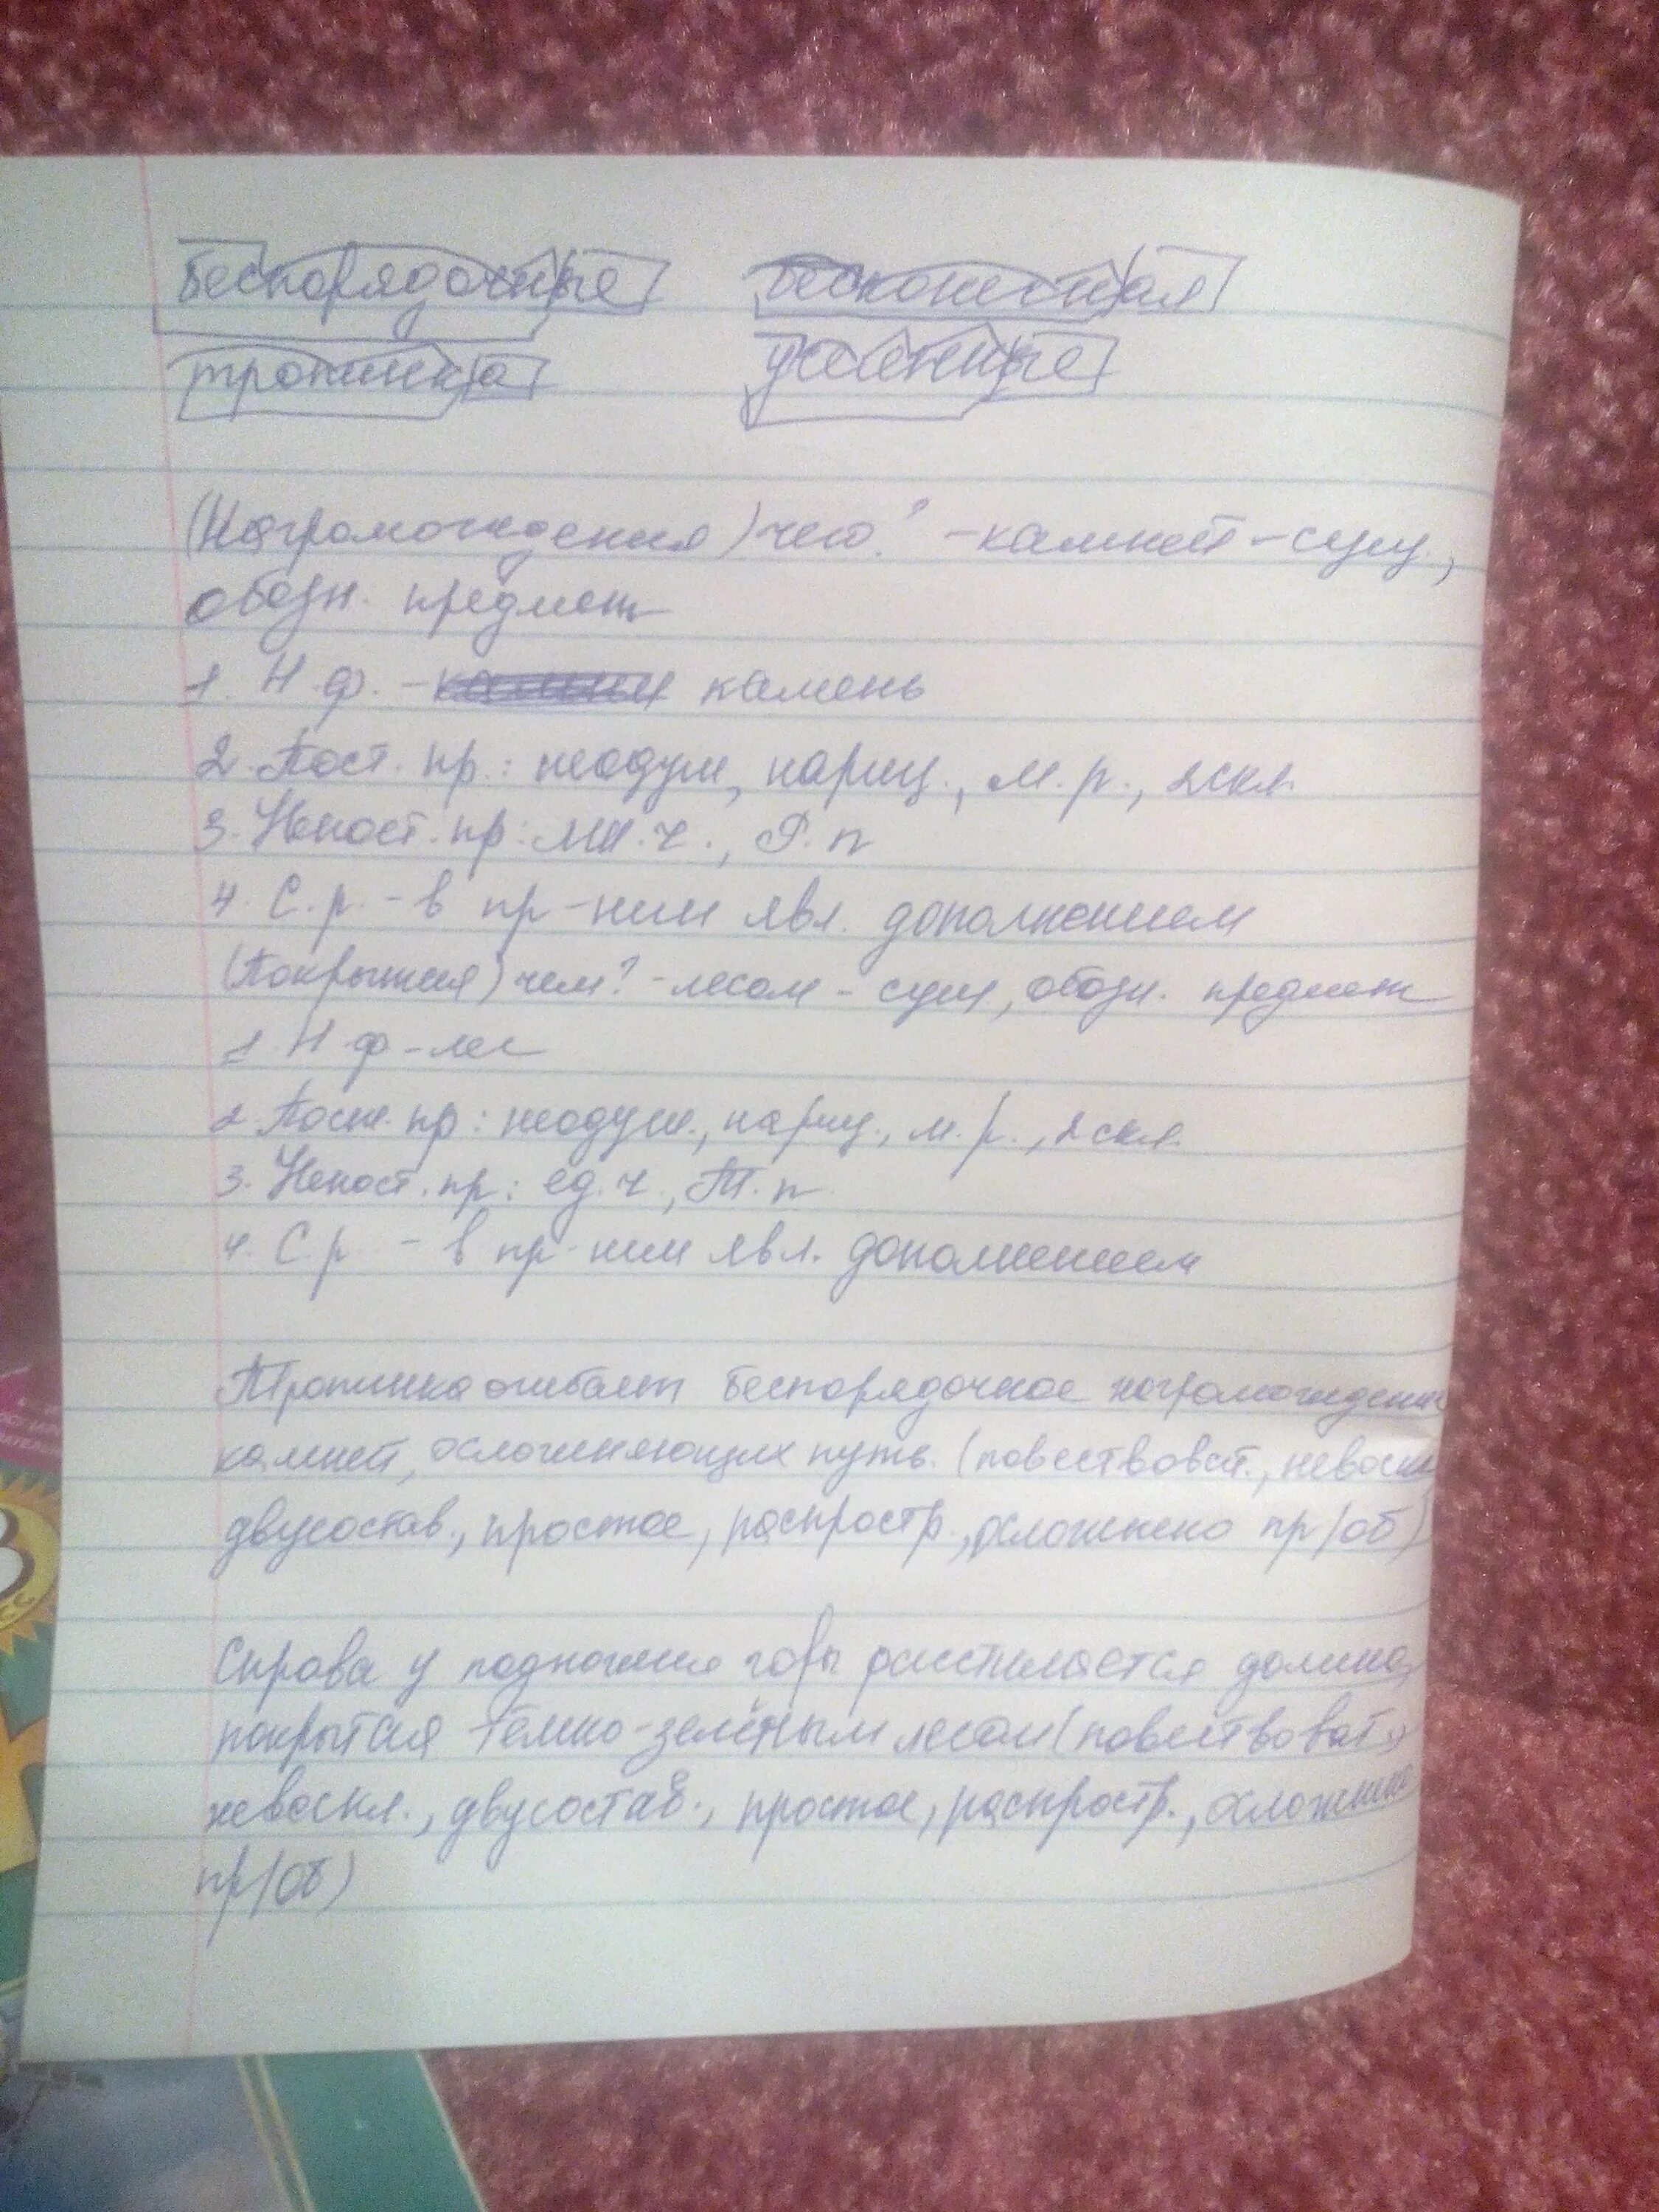 беспорядочные бесконечная
тропинка
(Нагромождения) чего? - камней - сущ.,
обозн. предмет
1. Н.ф. - камень
2. Пост. пр.: неодуш, нариц., м.р., 2скл.
3. Непост. пр: мн.ч., Р.п
4. С.р. - в пр-нии явл. дополнением
(Покрытая) чем? - лесом - сущ, обозн. предмет
1. Н.ф - лес
2. Пост. пр: неодуш., нариц., м.р., 2 скл.
3. Непост. пр: ед.ч., Т.п
4. С.р. - в пр-нии явл. дополнением
Тропинка огибает беспорядочное нагромождение
камней, осложняющих путь. (повествоват., невоскл
двусостав., простое, распростр., осложнено пр/об)
Справа у подножия горы расстилается долина,
покрытая тёмно-зелёным лесом (повествоват.,
невоскл., двусостав., простое, распростр., осложнено
пр/об)